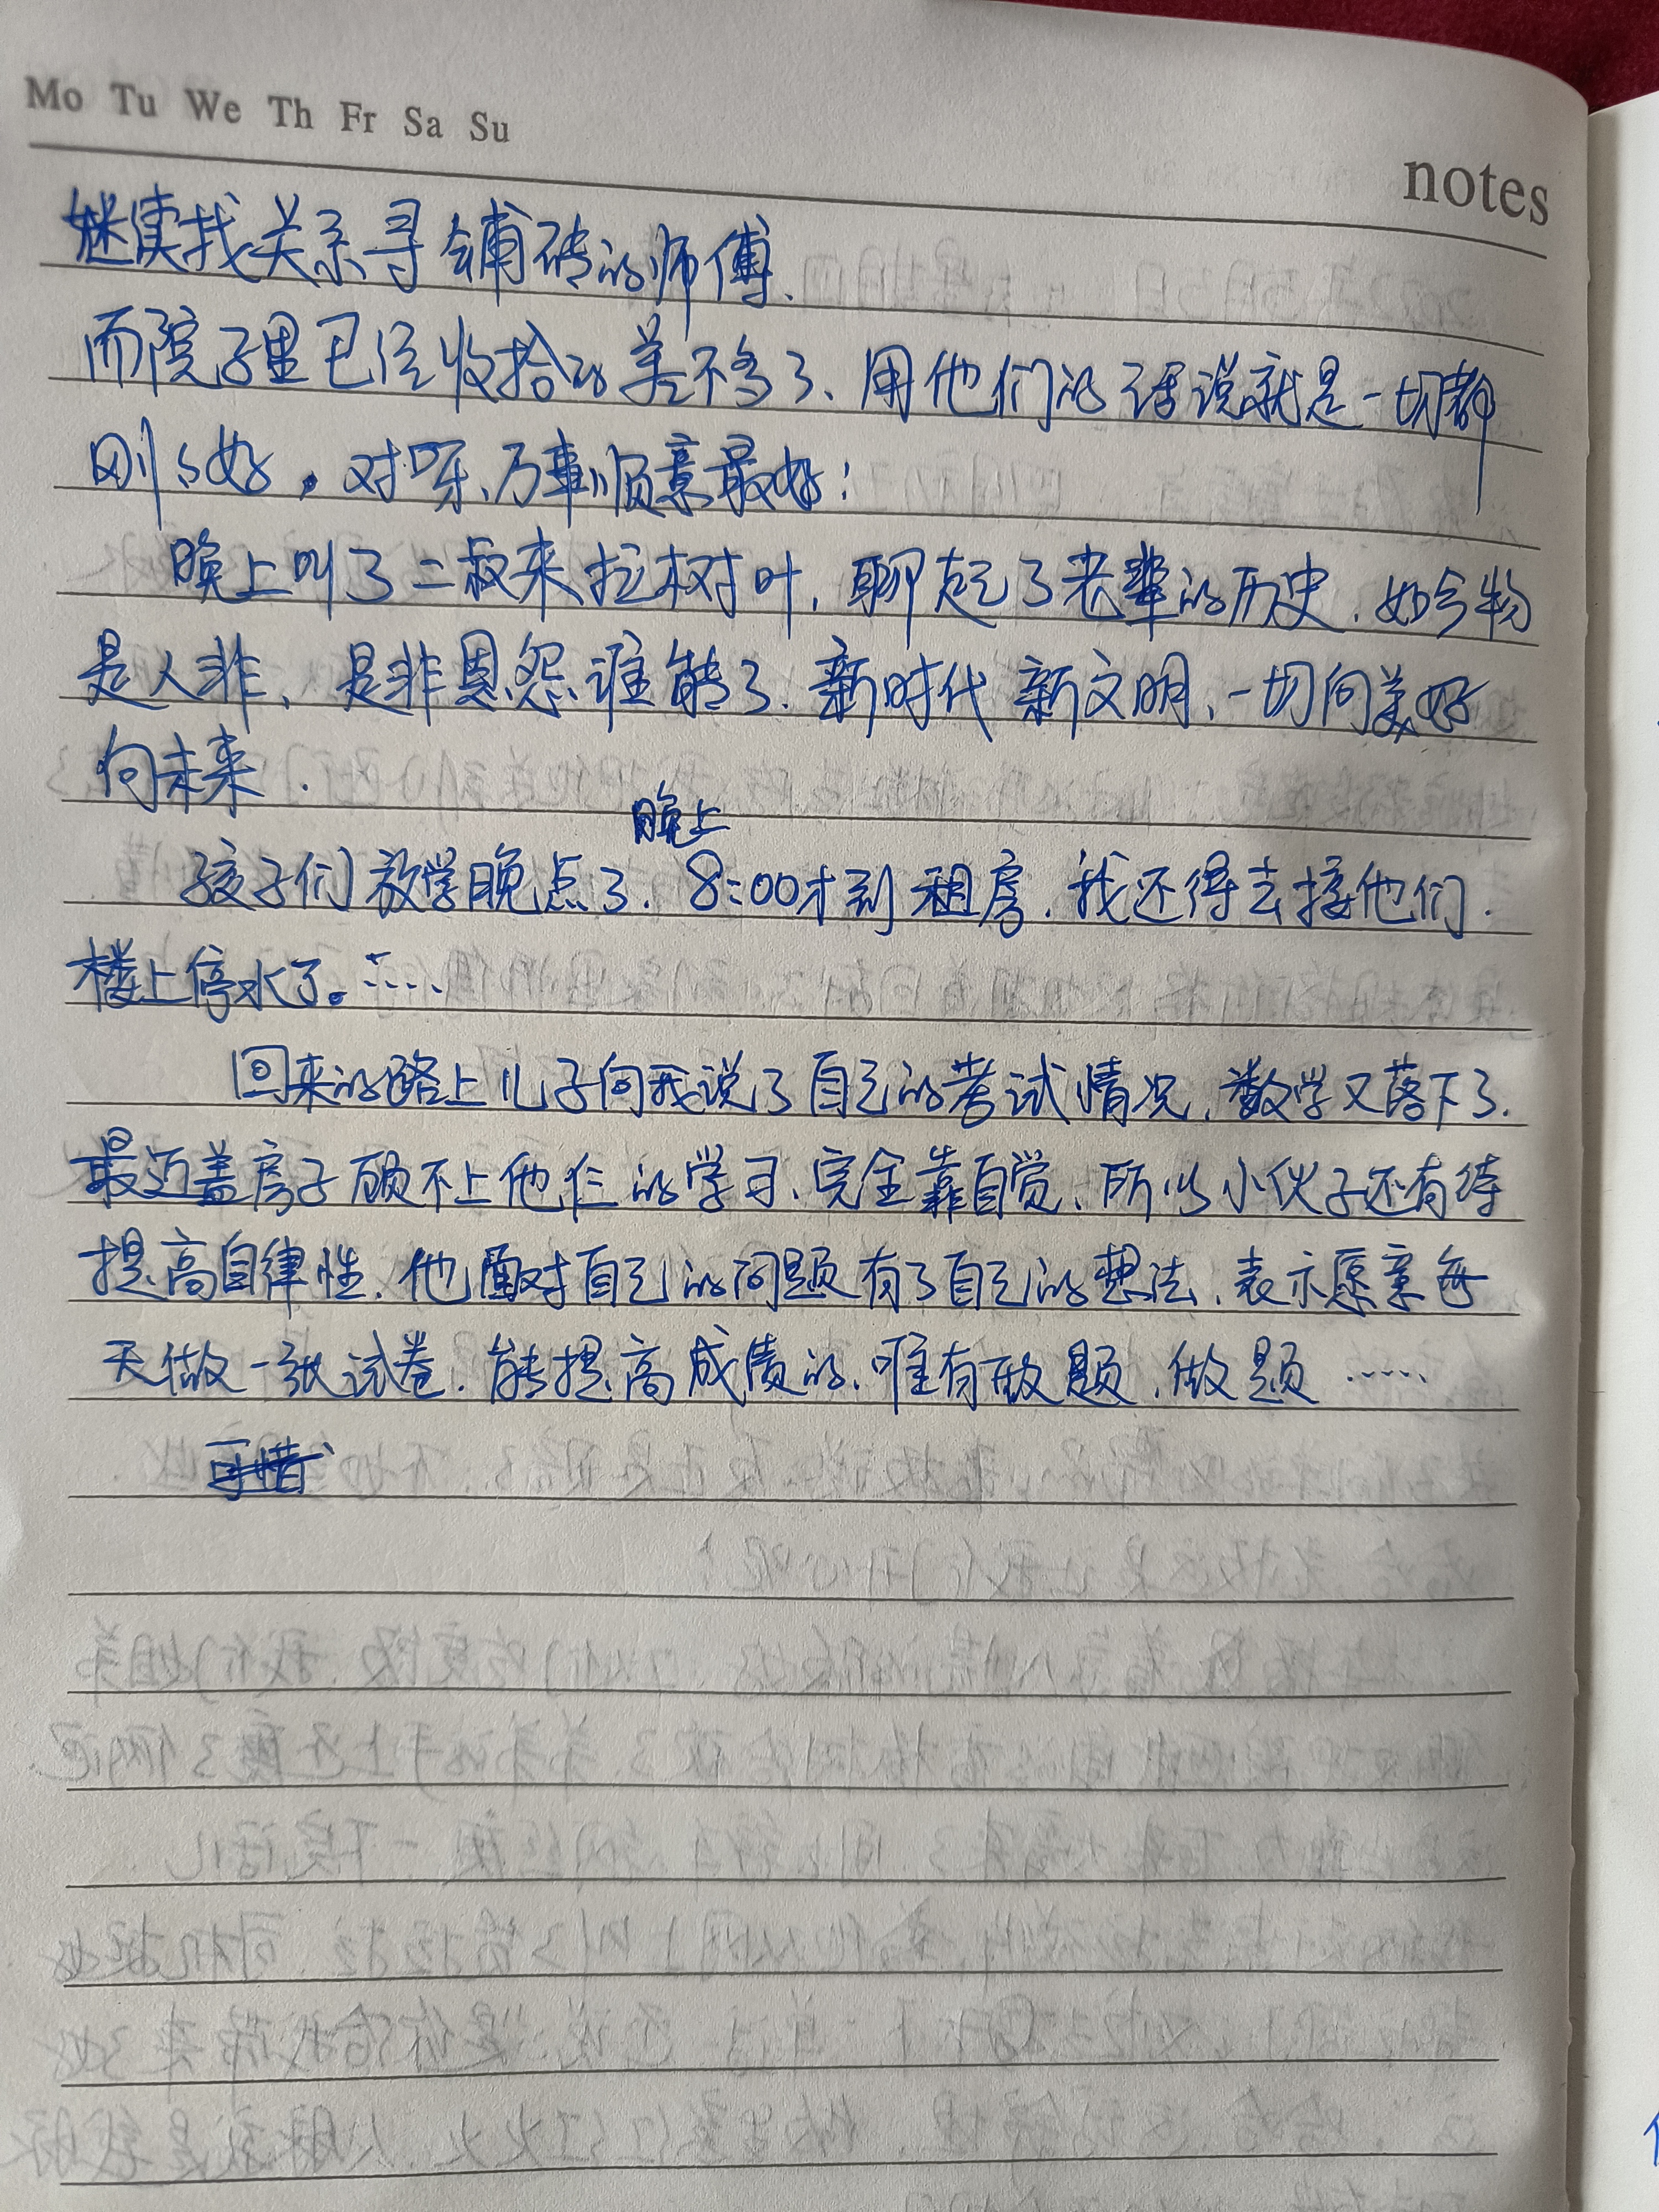 Mo Tu We Th Fr Sa Su
notes
继续找关系寻铺砖的师傅.
而院子里已经收拾的差不多了、用他们的话说就是一切都
刚刚好。对呀、万事顺意最好!
晚上叫了二叔来拉树叶,聊起了老辈的历史.如今物
是人非、是非恩怨谁能了.新时代 新文明、一切向美好
向未来.
晚上
孩子们放学晚点了.8:00才到租房.我还得去接他们.
楼上停水了。……
回来的路上儿子向我说了自己的考试情况,数学又落下了.
最近盖房子顾不上他仨的学习、完全靠自觉、所以小伙子还有待
提高自律性.他面对自己的问题有了自己的想法、表示愿意每
天做一张试卷.能提高成绩的、唯有做题、做题……
可惜